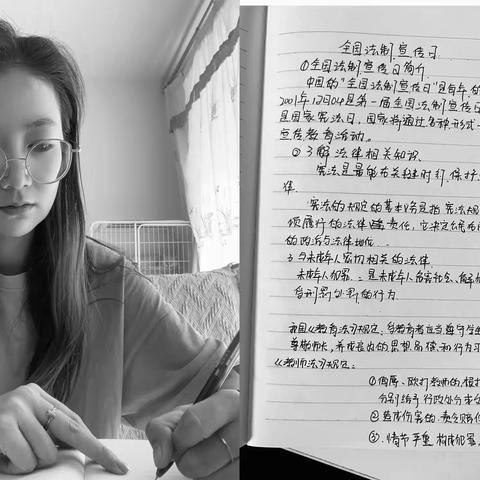 全国法制宣传日
①全国法制宣传日简介
中国的"全国法制宣传日"是每年的
2001年12月04日是第一届全国法制宣传日
是国家宪法日,国家将通过各种形式
宣传教育活动。
②了解法律相关知识
宪法是最能在关键时行、保护
律.
宪法的规定的基本义务是指宪法规
须履行的法律责任,它决定
的政治与法律地位
3.与未成年人密切相关的法律
未成年人犯罪:是未成年人危害社会、
刑罚处罚的行为
《教育法》规定、受教育者应当遵守学生
尊敬师长,养成良好的思想品德和行为习
《教师法》规定:
①侮辱、殴打教师的根据
分别给予行政处分或
②造成伤害的责令赔偿
③.情节严重 构成犯罪